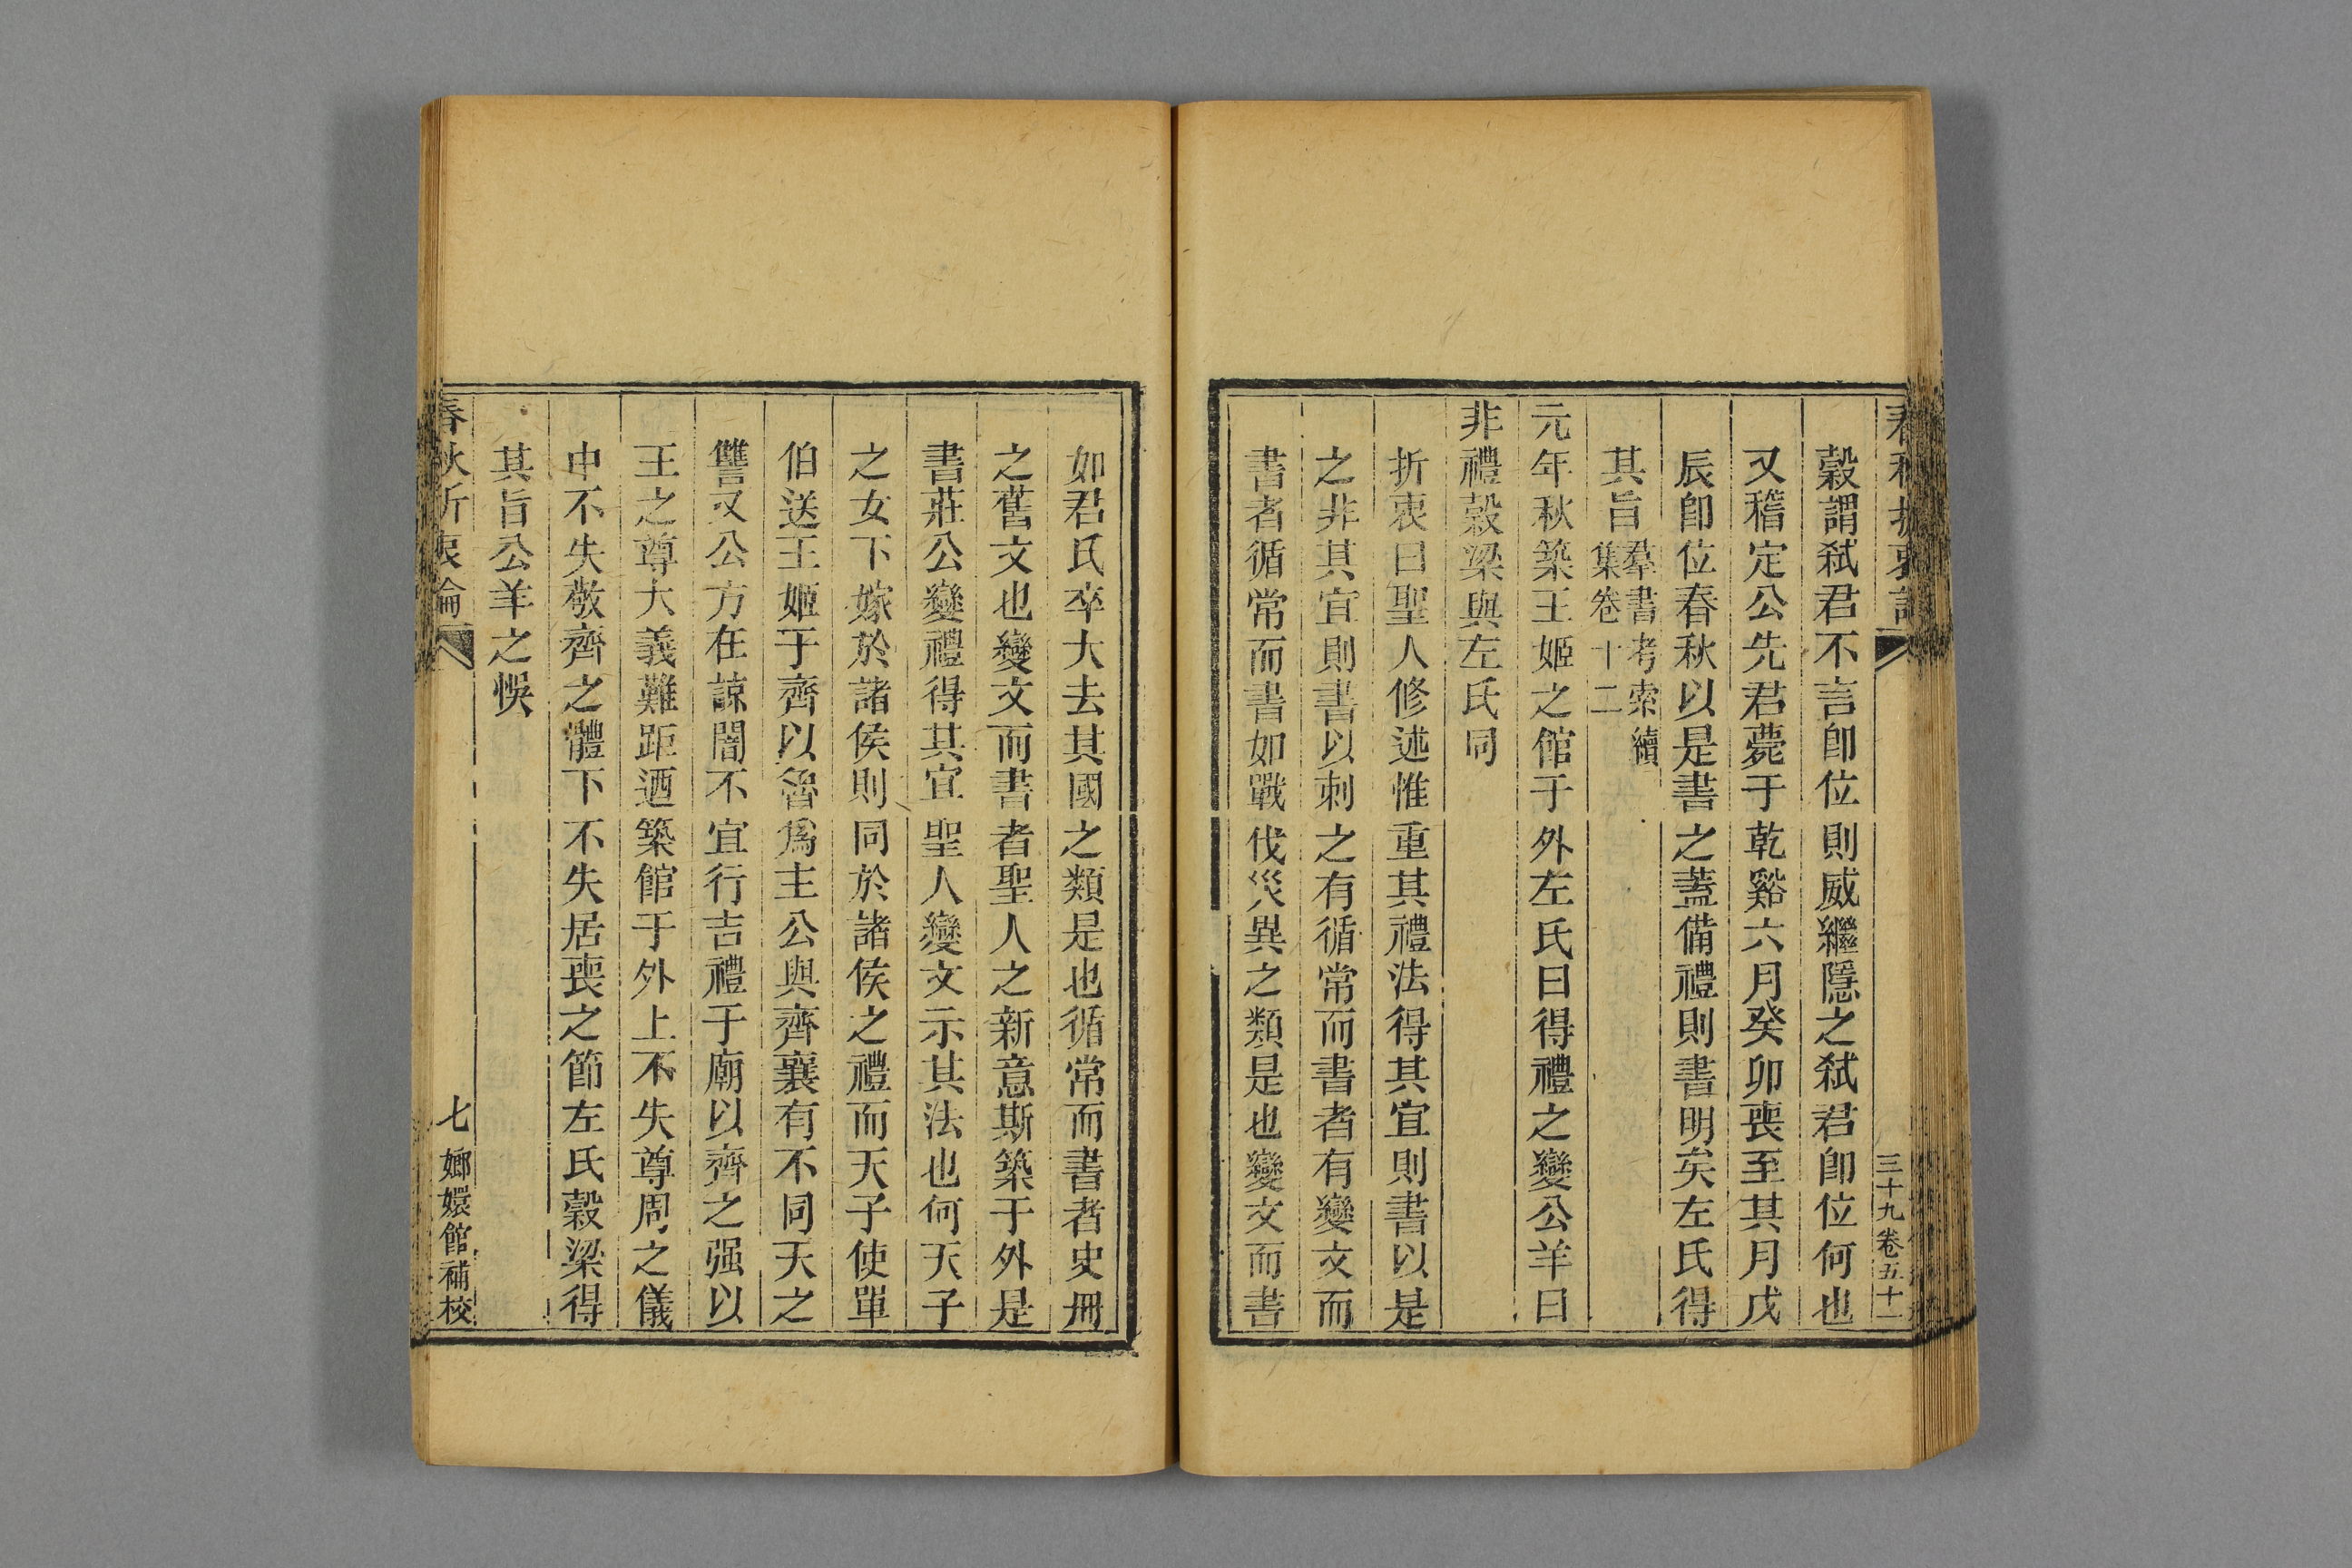 春秋折衷論
三十九卷五十一
穀謂弑君不言卽位則威繼隱之弑君卽位何也
又稽定公先君薨于乾谿六月癸卯喪至其月戊
辰卽位春秋以是書之蓋備禮則書明矣左氏得
其旨羣書考索續
集卷十二
元年秋築王姬之館于外左氏曰得禮之變公羊曰
非禮穀梁與左氏同
折衷曰聖人修述惟重其禮法得其宜則書以是
之非其宜則書以刺之有循常而書者有變文而
書者循常而書如戰伐災異之類是也變文而書
如君氏卒大去其國之類是也循常而書者史冊
之舊文也變文而書者聖人之新意斯築于外是
書莊公變禮得其宜聖人變文示其法也何天子
之女下嫁於諸侯則同於諸侯之禮而天子使單
伯送王姬于齊以魯爲主公與齊襄有不同天之
讐又公方在諒闇不宜行吉禮于廟以齊之强以
王之尊大義難距迺築館于外上不失尊周之儀
中不失敬齊之體下不失居喪之節左氏穀梁得
其旨公羊之悞
春秋折衷論
七
嫏嬛館補校